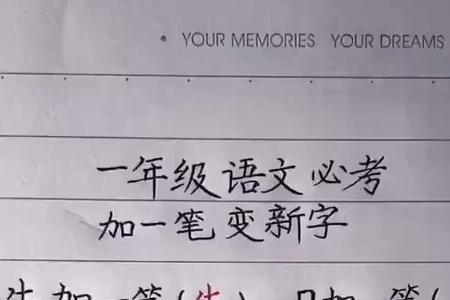 • YOUR MEMORIES YOUR DREAMS
一年级语文必考
加一笔变新字